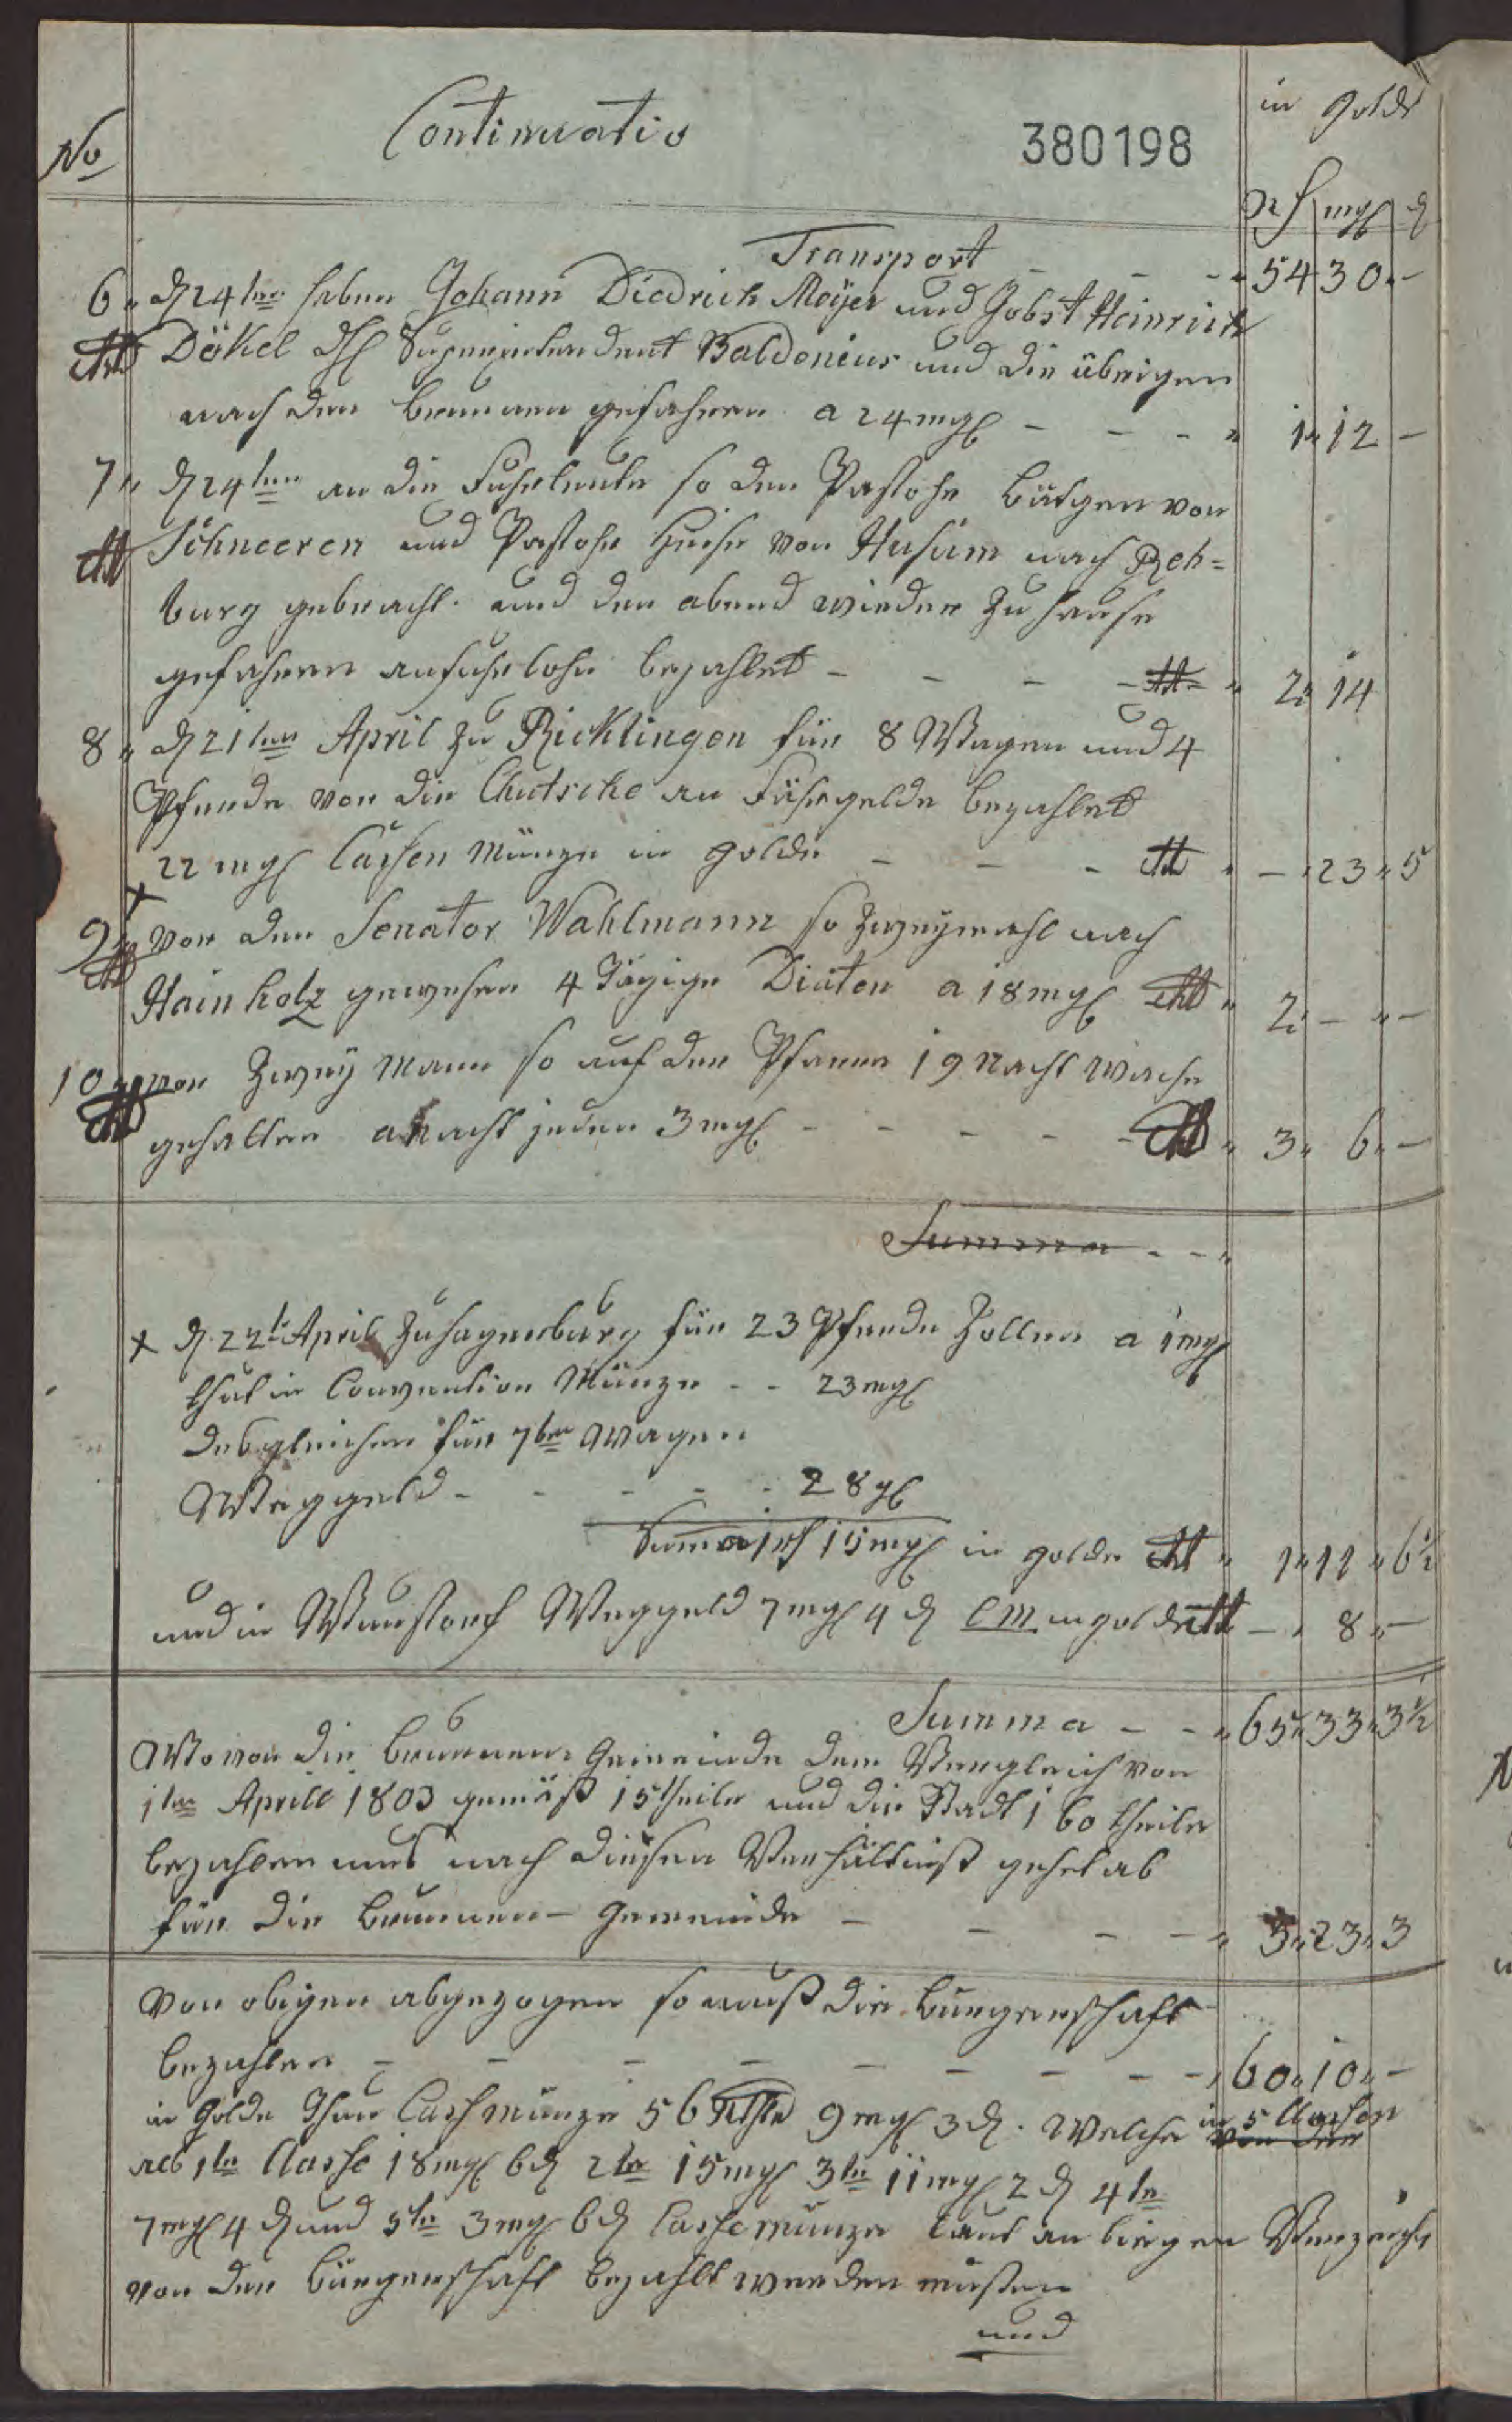 in Golde
No Continuatio 380198
rh mgl d
Transport - - - 54 30 -
6. d 24ten haben Johann Diedrich Meyer und Jobst Heinrich
Dökel dH Superintendent Baldenius und die übrigen
nach den brunnen gefahren a 24 mgl - - - 1 12 -
7. d 24ten an die Fuhrleute so den Pastohr von
Schneeren und Pastohr von Husum nach Reh=
burg gebracht und den abend wieder zu Hause
gefahren anfuhrlohn bezahlet - - - - 2 14
8. d 21ten April zu Ricklingen für 8 Wagen und 4
Pferde vor die Chutsche an Fährgelde bezahlet
22 mgl Cassen Münze in Golde - - - - 23 5
x
9. vor den Senator Wahlmann so zweymahl nach
Hainholz gewesen 4 Tägige Diäten a 18 mgl 2 - -
10. vor Zwey Mann so auf der Pfarre 19 Nacht Wache
gehalten a Nacht jeden 3 mgl - - - - 3 6 -
Summa - -
x d. 22t April zu hagenburg für 23 Pferde Zollen a 1 mgl
thut in Convention Münze - - 23 mgl
desgleichen für 7ben Wagen
Weggeld - - - - - 28 gl
Suma 1 rh 15 mgl in golde 1 11 6½
und in Wunstorf Weggeld 7 mgl 4 d CM in golde - 8 -
Summa - - 65 33 3½
Wovon die brunnen Gemeinde dem Vergleich von
1ten Aprill 1803 gemäß 15 theile und die Stadt 160 theile
bezahlen mus nach diesen Verhältniß gehet ab
für die brunnen- Gemeinde - - - - 5 23 3
Von obigen abgezogen so muß die bürgerschaft
bezahlen - - - - - - - - 60 10 -
in Golde Thun Cassmünze 56 Rthlr 9 mgl 3 d. Welche in 5 Classen
von der
als 1te Classe 18 mgl 6 d 2te 15 mgl 3te 11 mgl 2 d 4te
7 mgl 4 d und 5te 3 mgl 6 d Cassemünze laut an liegen
von der bürgerschaft bezahlt werden müßen
und